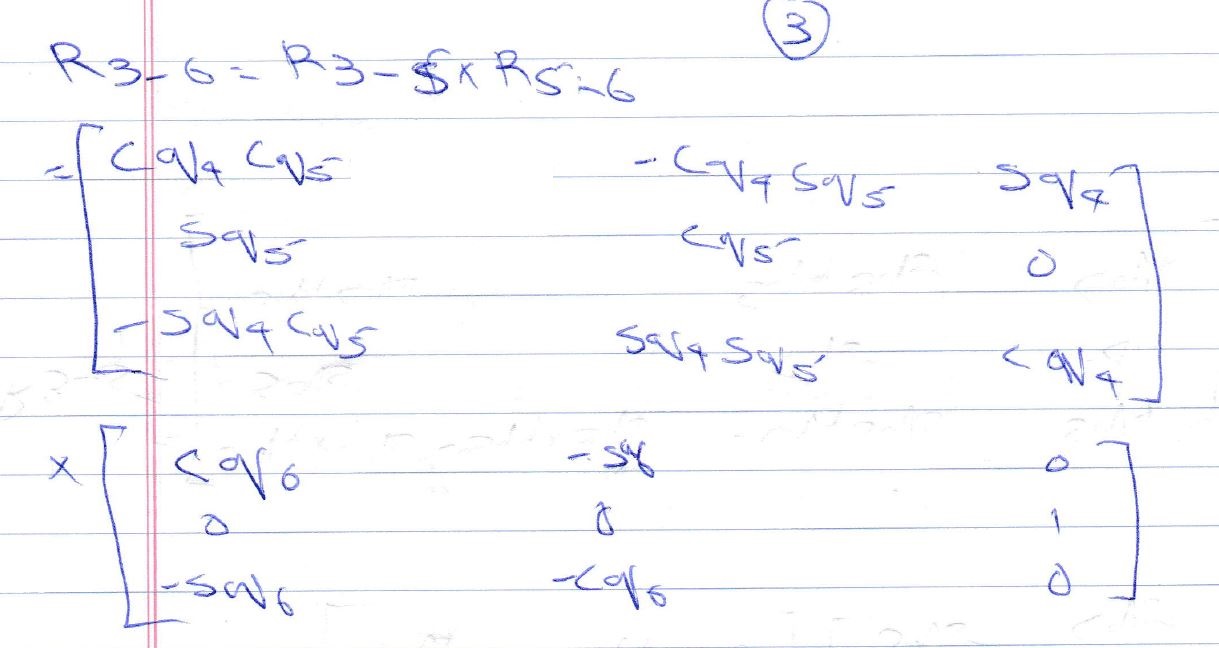 3
R3-6 = R3-5 x R5-6
= [ Cq4 Cq5 -Cq4 Sq5 Sq4
Sq5 Cq5 0
-Sq4 Cq5 Sq4 Sq5 Cq4 ]
x [ Cq6 -Sq6 0
0 0 1
-Sq6 -Cq6 0 ]